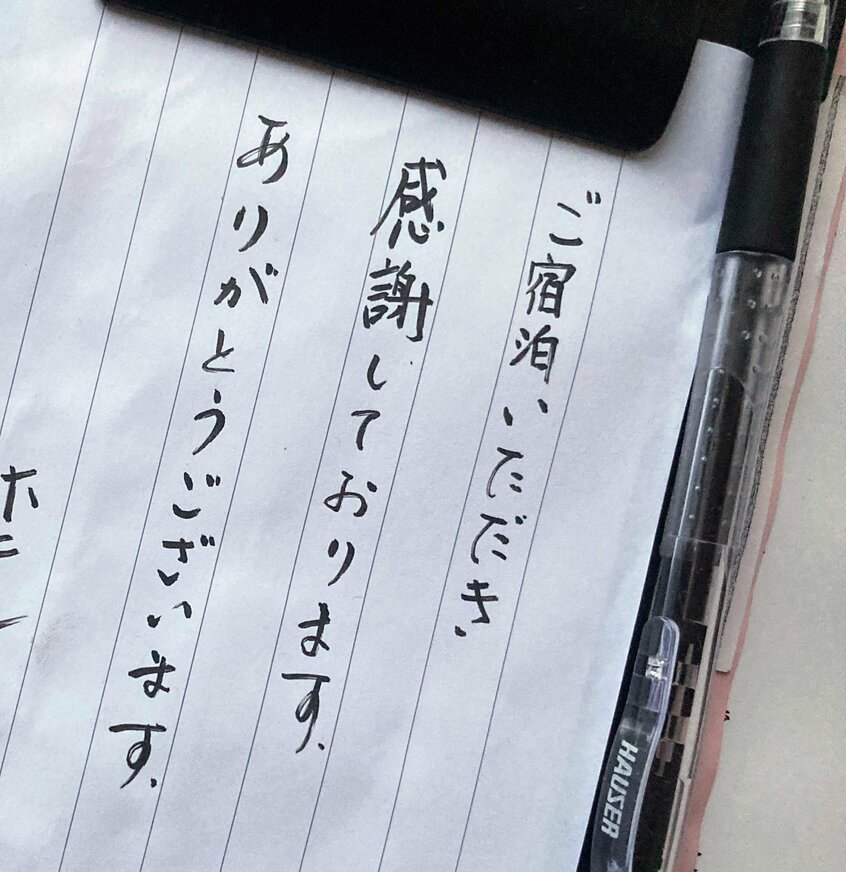 ご宿泊いただき
感謝しております.
ありがとうございます.
HAUSER